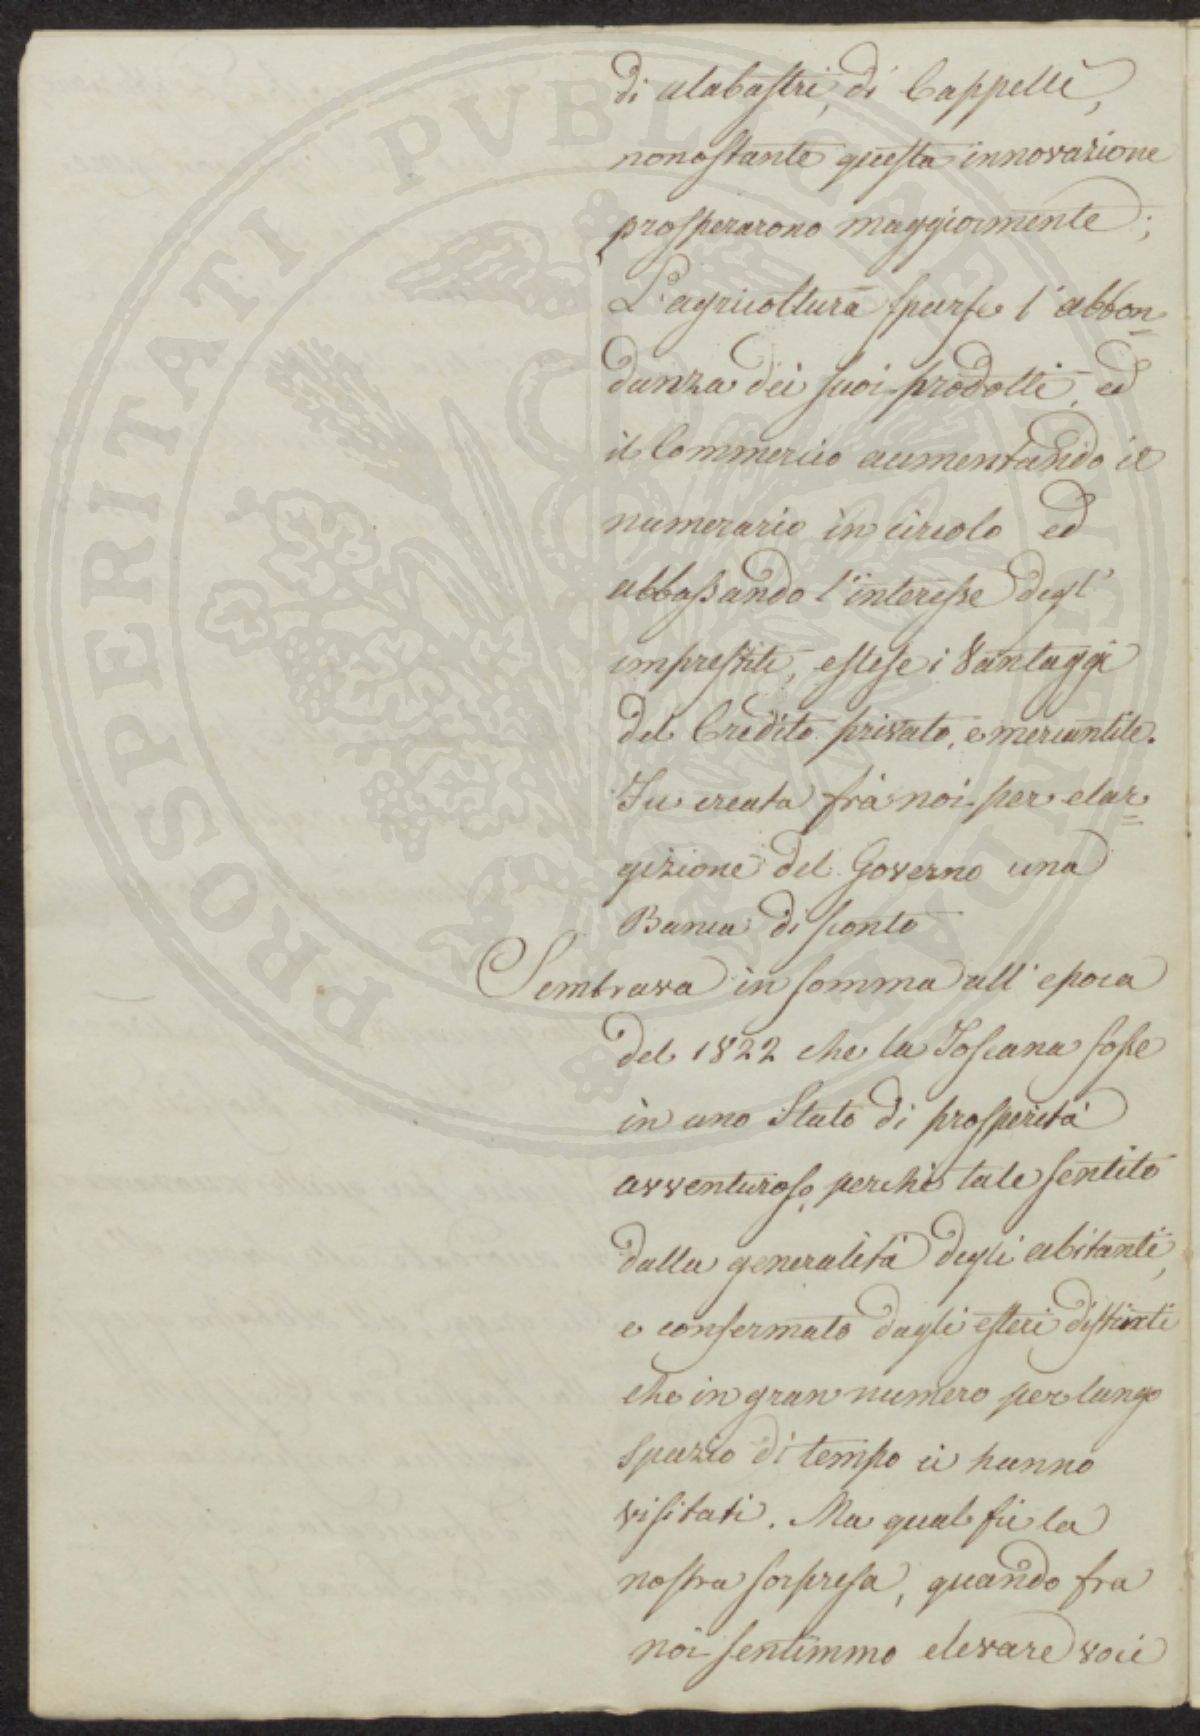 di alabastri, di Cappelli,
nonostante questa innovazione
prosperarono maggiormente;
L'agricoltura sparse l'abbon=
danza dei suoi prodotti, ed
il Commercio aumentando il
numerario in circolo ed
abbassando l'interesse degl'
imprestiti, estese i Vantaggi
del Credito privato, e mercantile.
Fu creata frà noi per elar=
gizione del Governo una
Banca di sconto
Sembrava in somma all'epoca
del 1822 che la Toscana fosse
in uno Stato di prosperità
avventuroso, perchè tale sentito
dalla generalità degli abitanti,
e confermato dagli esteri distinti
che in gran numero per lungo
spazio di tempo ci hanno
visitati. Ma qual fù la
nostra sorpresa, quando fra
noi sentimmo elevare voci
PROSPERITATI PVBLICAE